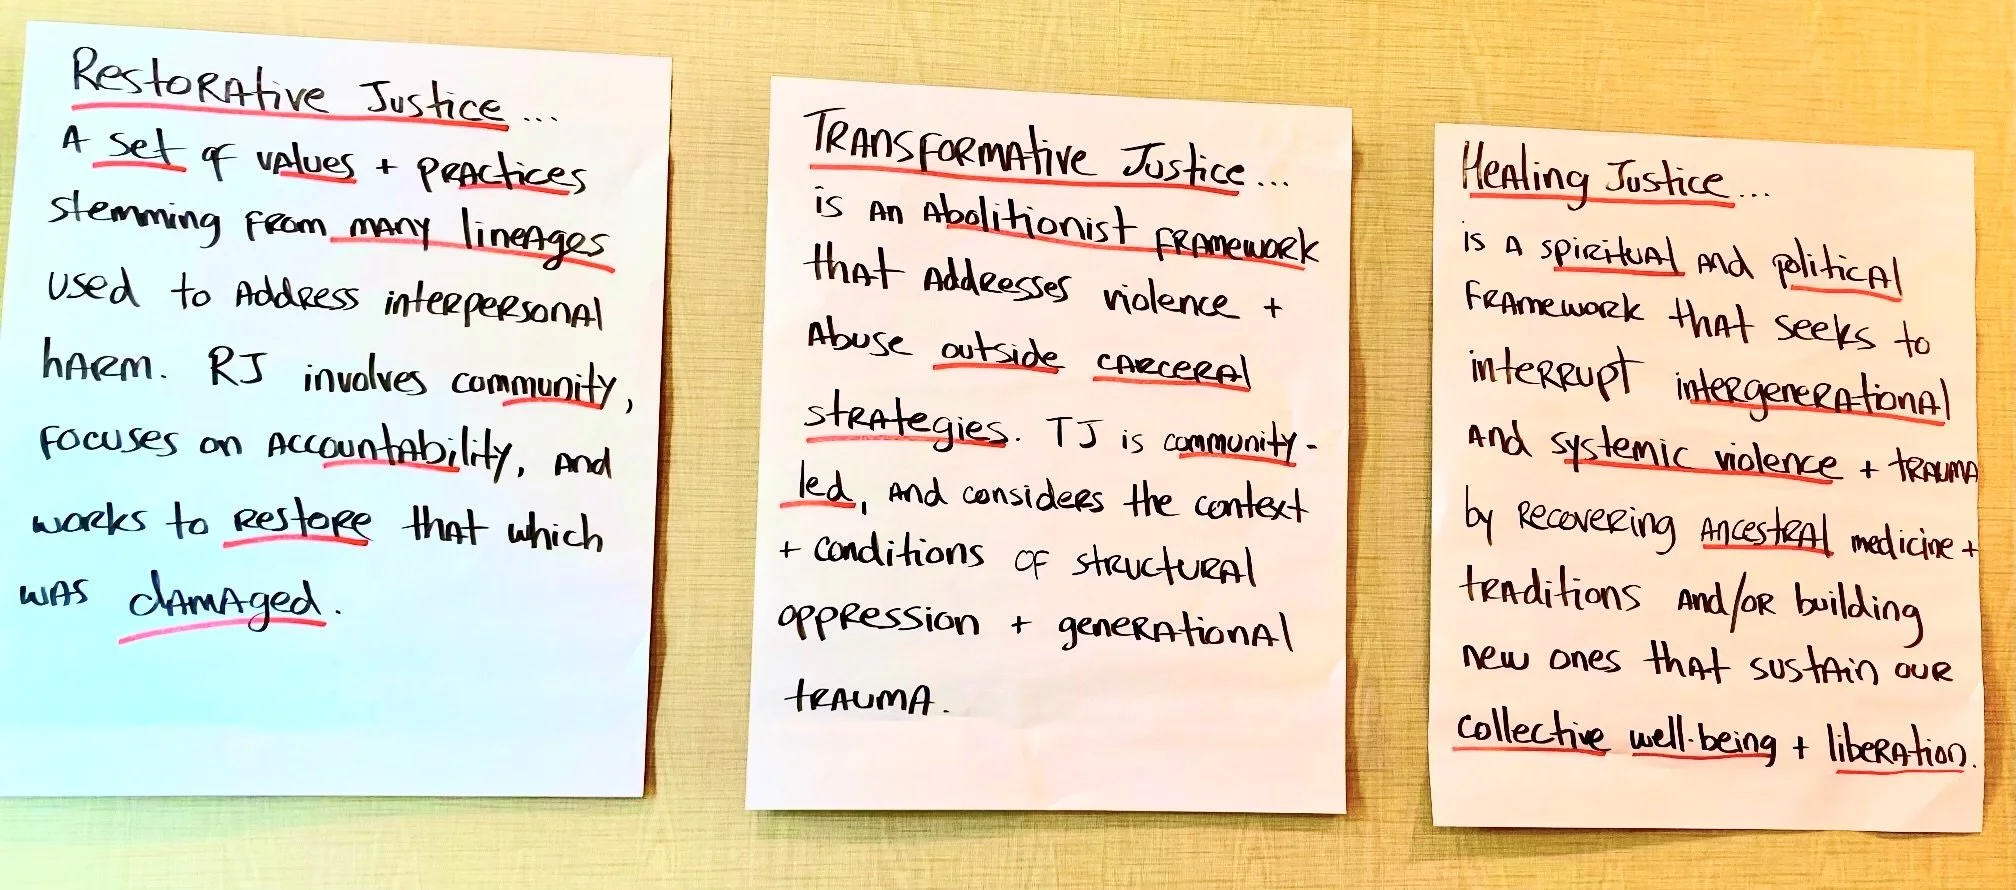 Restorative Justice...
A set of values + practices
stemming from many lineages
used to address interpersonal
harm. RJ involves community,
focuses on accountability, and
works to restore that which
was damaged.
Transformative Justice...
is an abolitionist framework
that addresses violence +
abuse outside carceral
strategies. TJ is community-
led, and considers the context
+ conditions of structural
oppression + generational
trauma.
Healing Justice...
is a spiritual and political
framework that seeks to
interrupt intergenerational
and systemic violence + trauma
by recovering ancestral medicine +
traditions and/or building
new ones that sustain our
collective well-being + liberation.